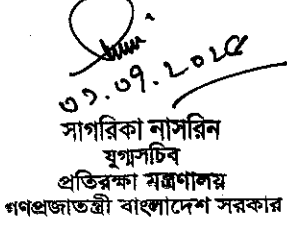 ০১.০৭.২০২৫
সাগরিকা নাসরিন
যুগ্মসচিব
প্রতিরক্ষা মন্ত্রণালয়
গণপ্রজাতন্ত্রী বাংলাদেশ সরকার